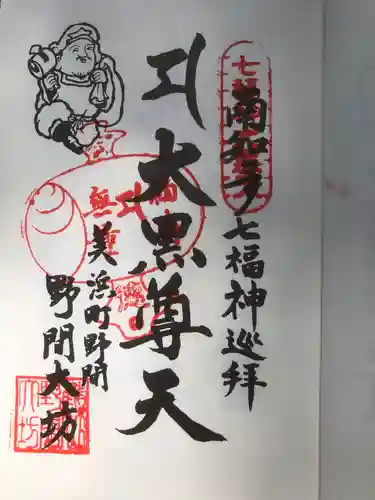 南知多七福神巡拝
大黒尊天
美浜町野間
野間大坊